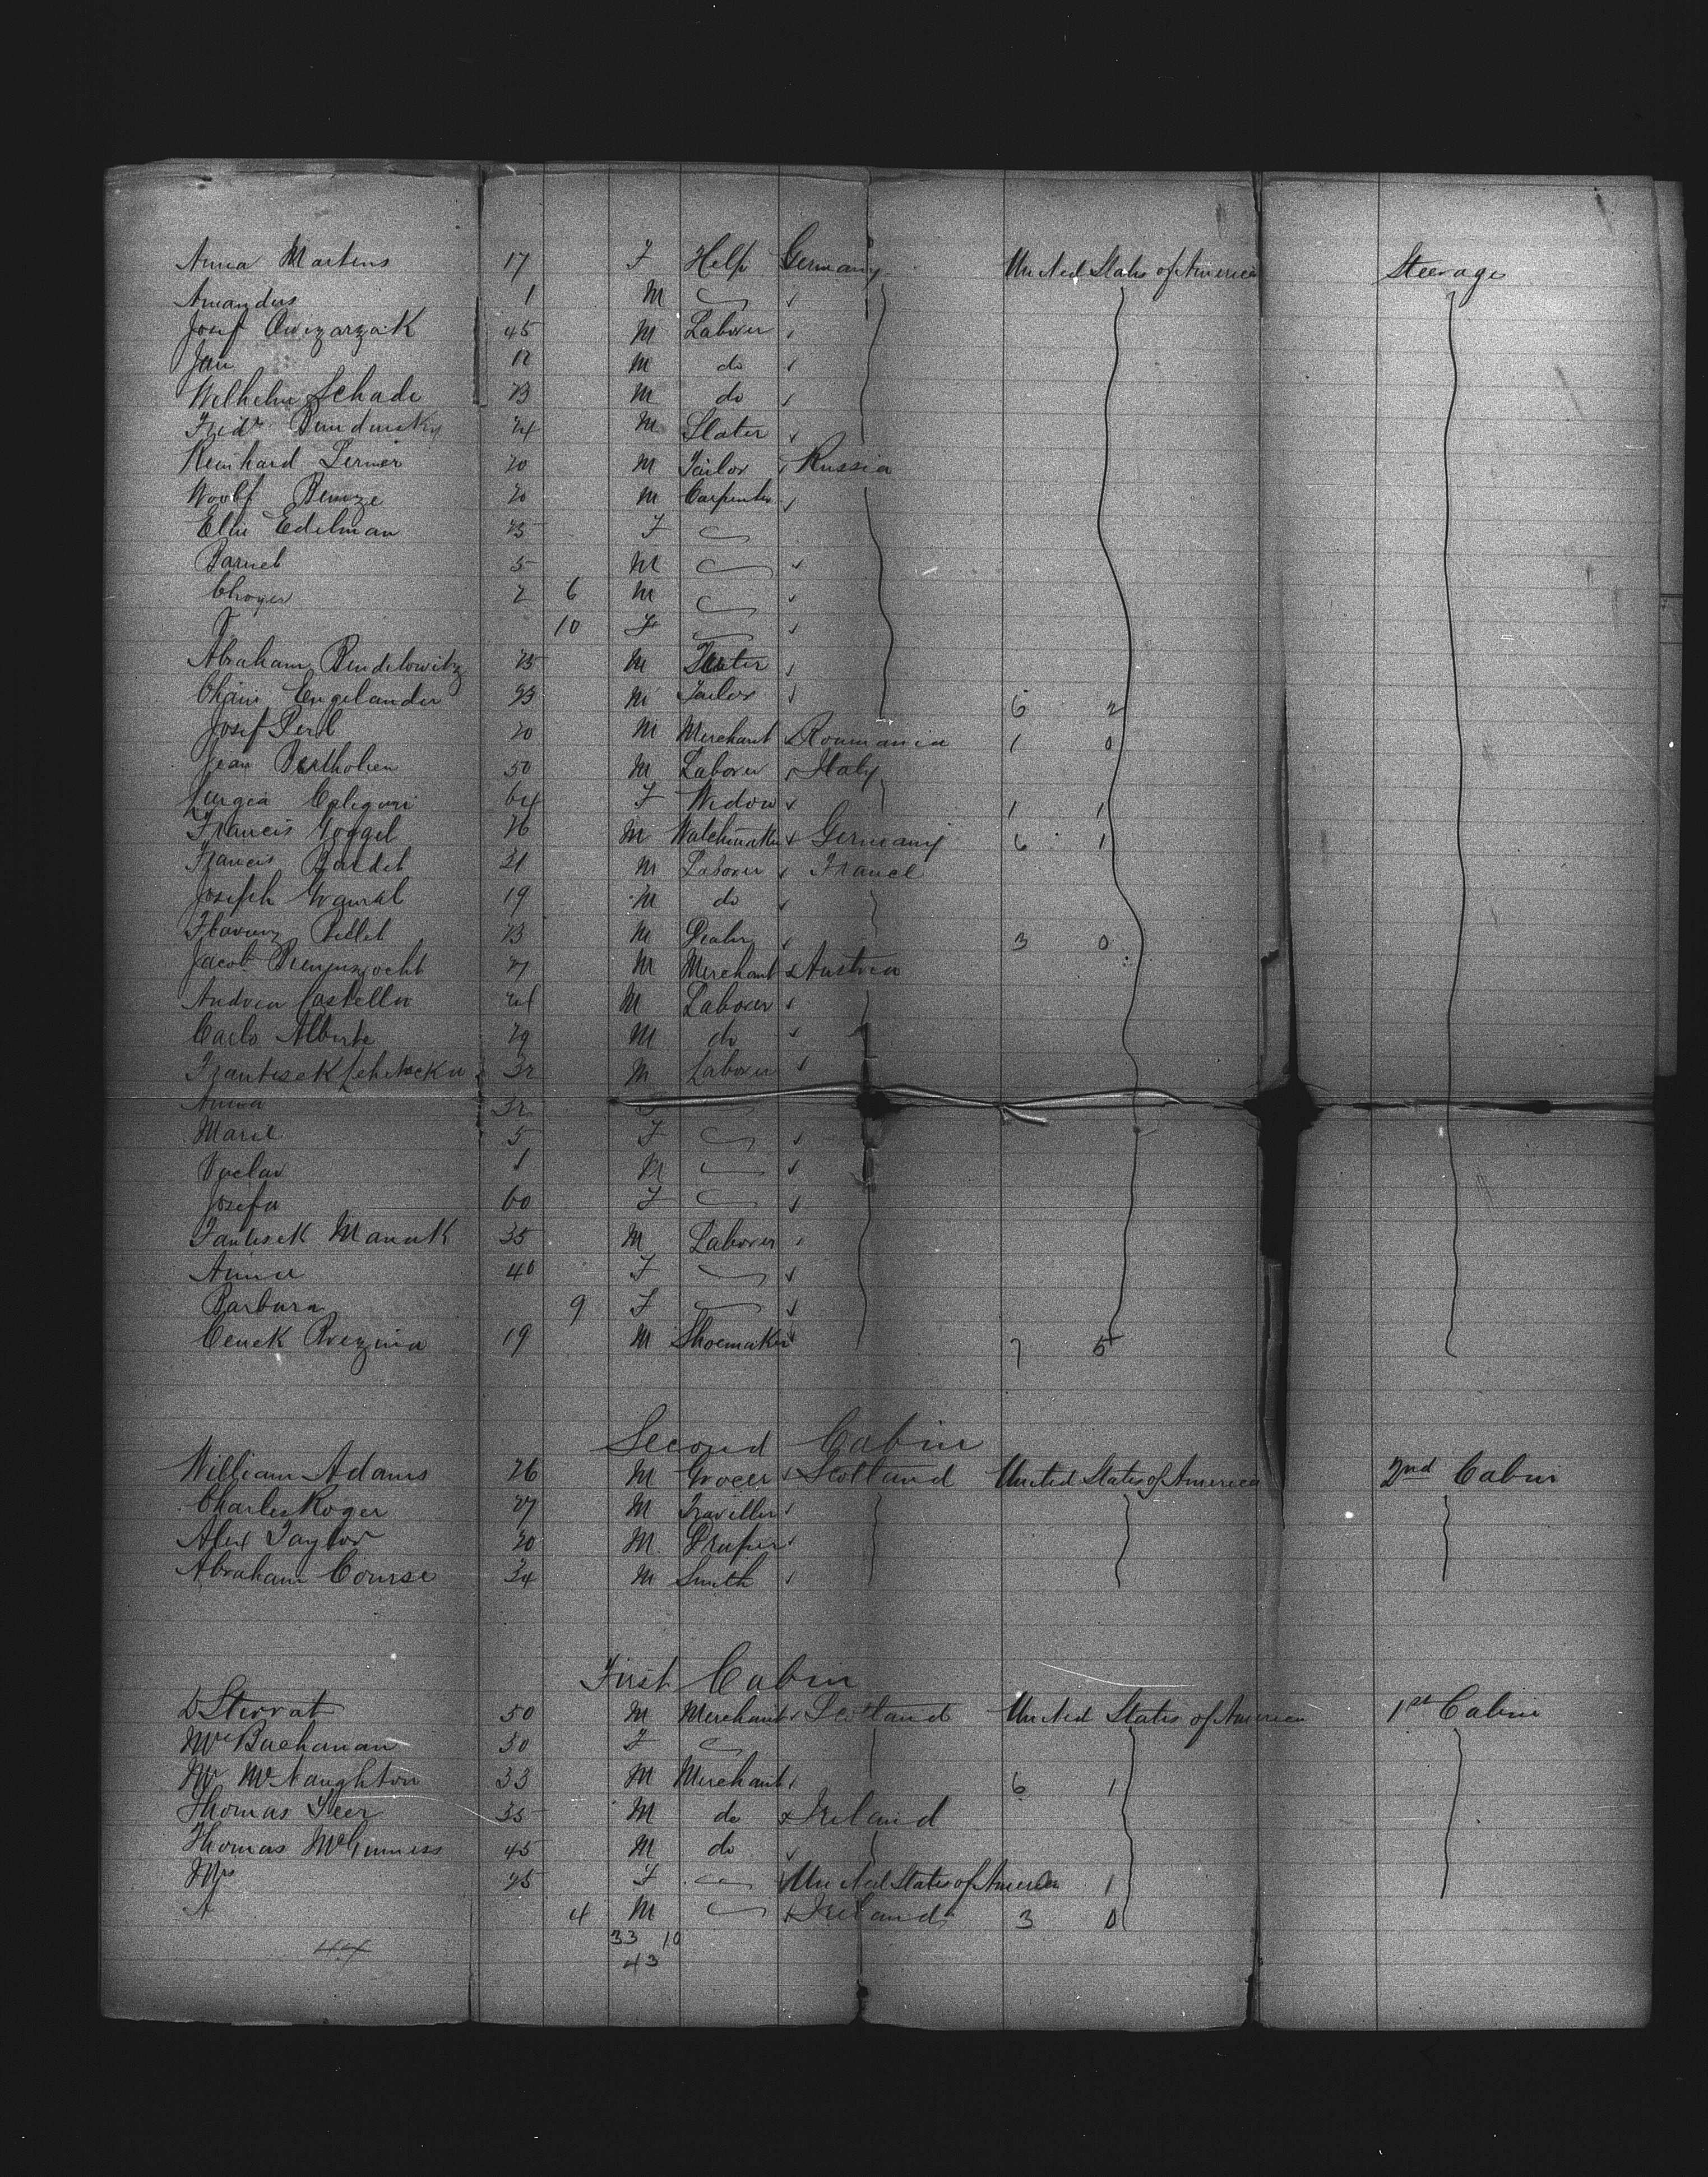 Anna Martens 17 F Help Germany United States of America Steerage
Amandus 1 M
Josef Owczarzak 45 M Laborer
Jan M do
Wilhelm Schade 23 M do
Fried 24 M Slater
Reinhard Lerner 20 M Tailor Russia
Woolf 20 M Carpenter
Edelman 25 F
Barnet 5 M
2 6 M
10 F
Abraham Bendelowitz 25 M
Chaim Englander 23 M Tailor 6 2
Josef Perl 20 M Merchant Roumania 1 0
Jean 50 M Laborer Italy
64 F Widow 1 1
Francis Goggel 26 M Watchmaker Germany 6 1
Francis 21 M Laborer France
Joseph 19 M do
23 M 3 0
Jacob M Merchant Austria
Andrea Castello M Laborer
Carlo Alberto 29 M do
Frantisek 32 M Laborer
Anna 32 F
Marie 5 F
Vaclav 1 M
Josefa 60 F
35 M Laborer
Anna 40 F
Barbara 9 F
Cenek Brezina 19 M Shoemaker 7 5
Second Cabin
William Adams 26 M Grocer Scotland United States of America 2nd Cabin
Charles Roger 27 M Traveller
Alex Taylor 20 M Draper
Abraham Course 34 M Smith
First Cabin
D Stirrat 50 M Merchant Scotland United States of America 1st Cabin
Buchanan 30 F
McNaughton 33 M Merchant 6 1
Thomas 35 M do Ireland
Thomas McGinness 45 M do
Mrs 25 F United States of America 1
A 4 M Ireland 3 0
33 10
44 43